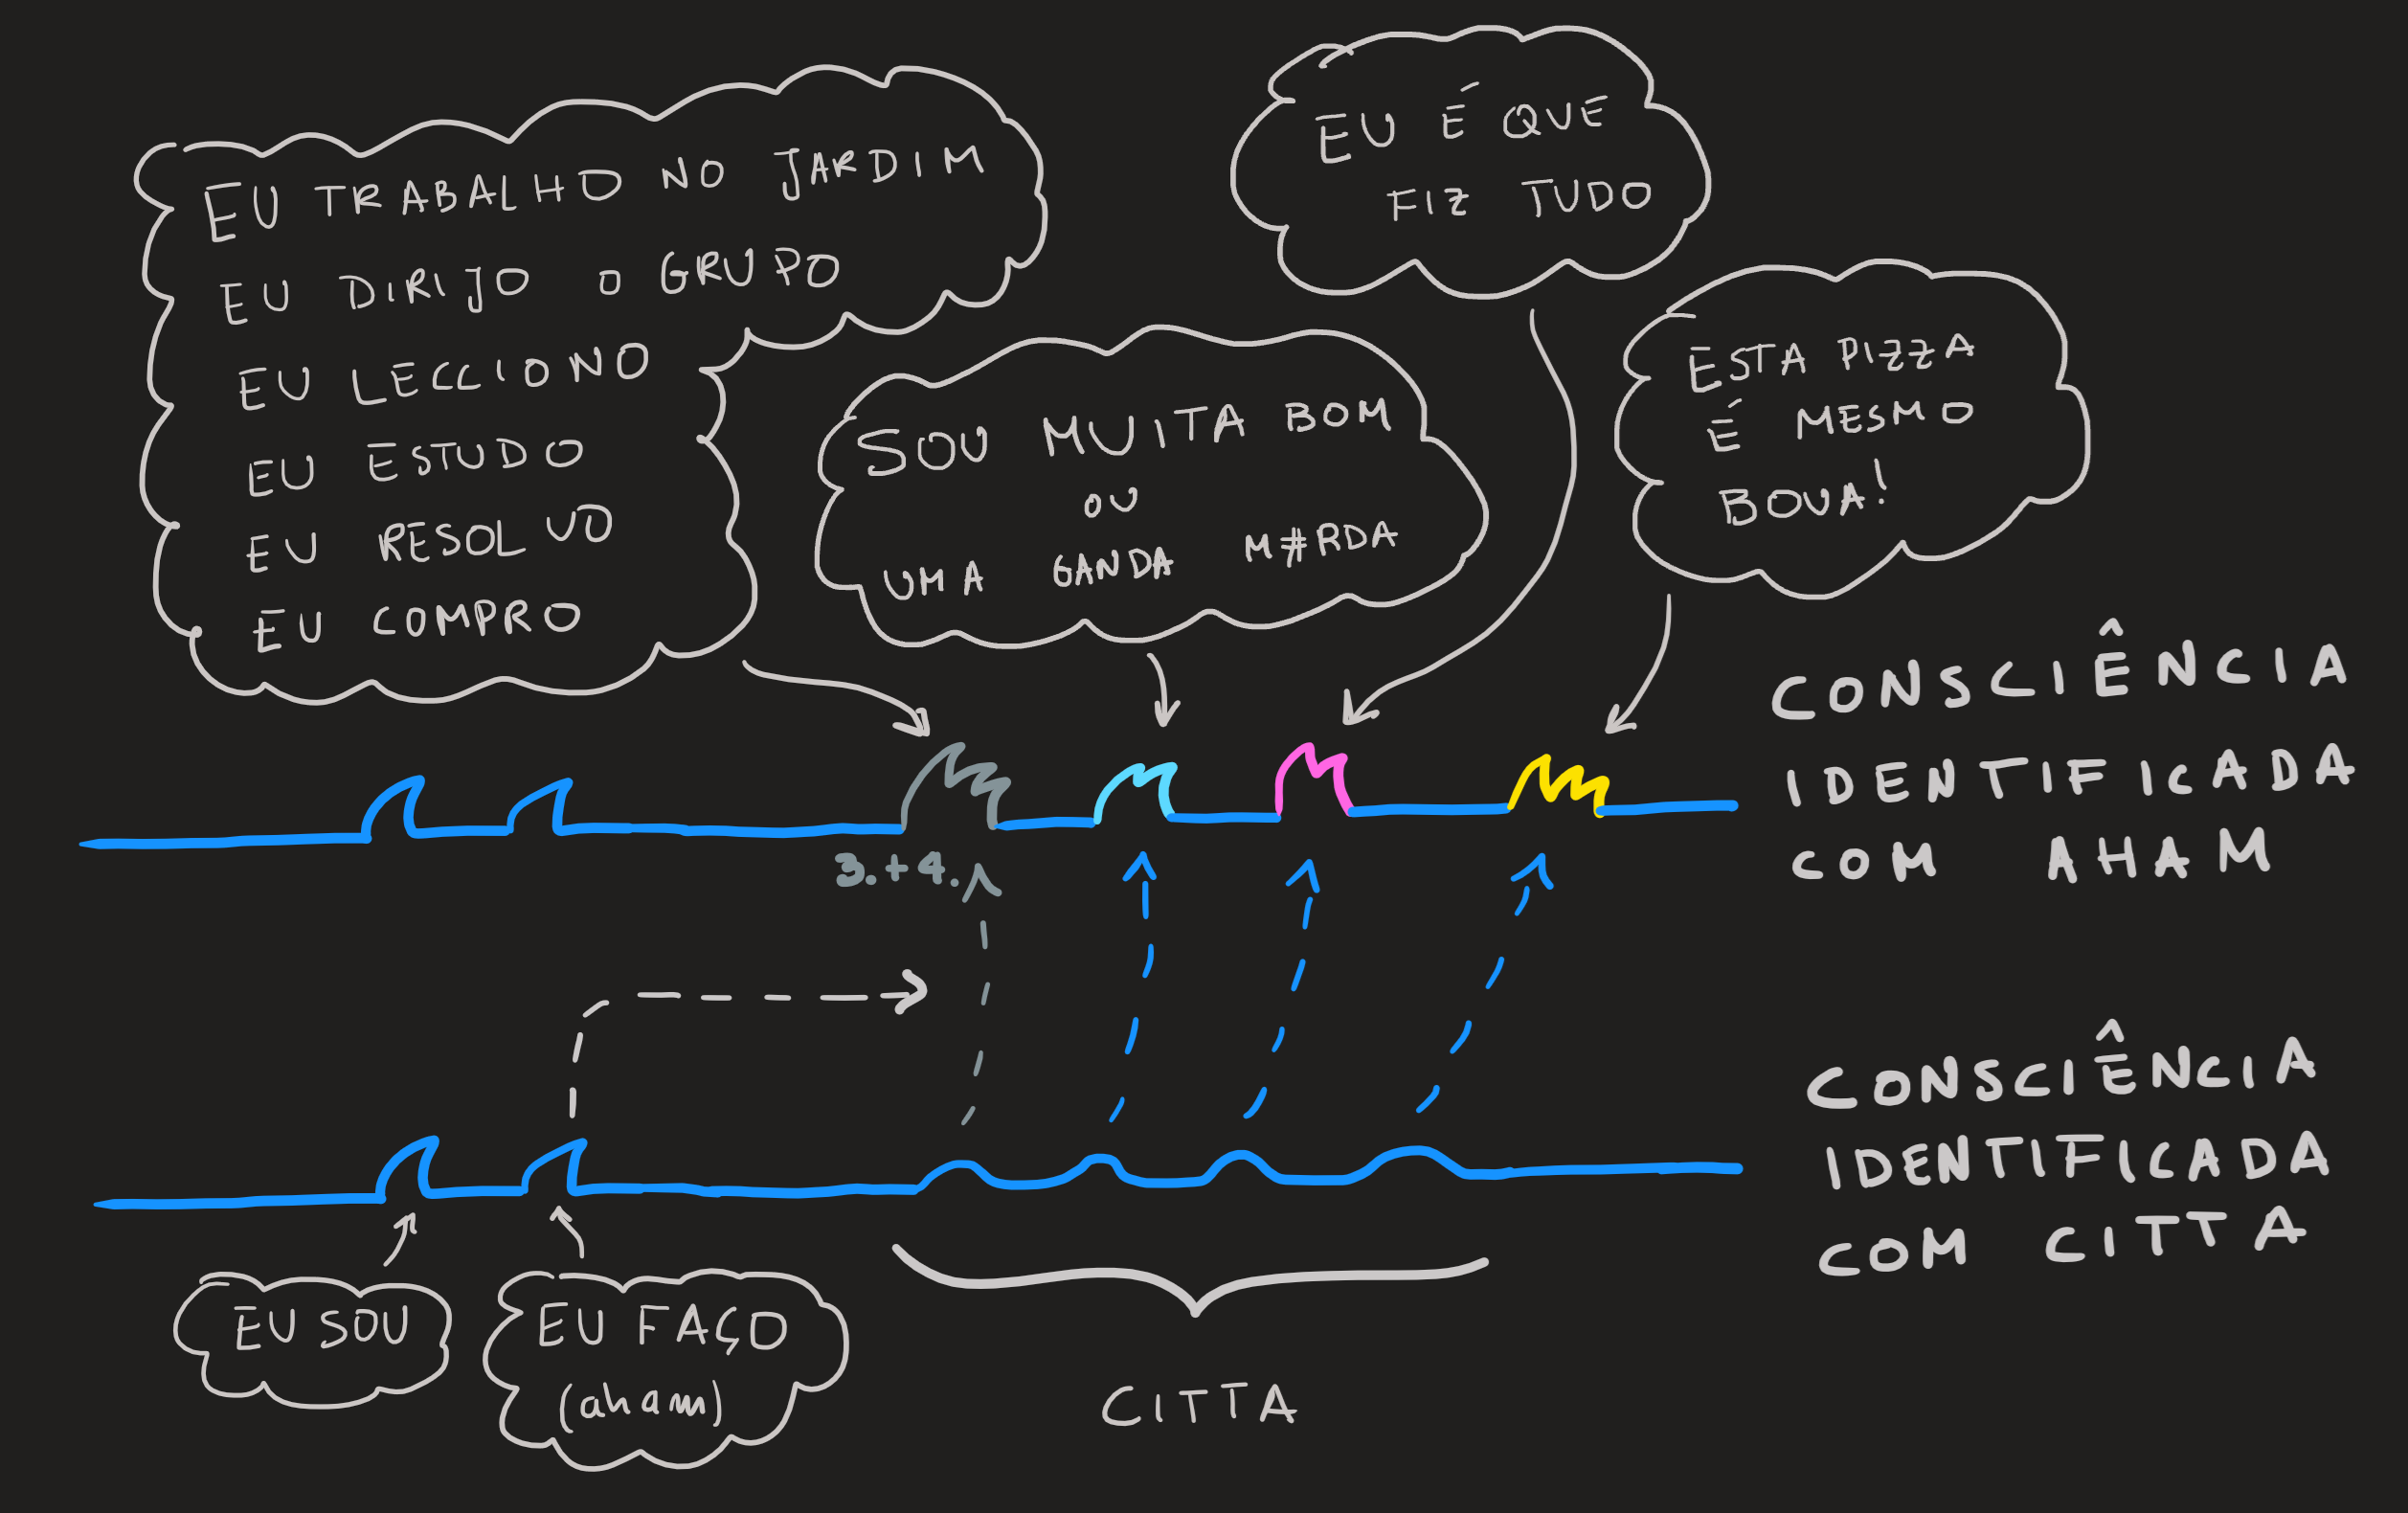 EU TRABALHO NO JARDIM
EU DIRIJO O GRUPO
EU LECCIONO
EU ESTUDO
EU RESOLVO
EU COMPRO
SOU MUITA BOM
OU
UMA GANDA M#RDA
EU É QUE
FIZ TUDO
ESTA PIZZA
É MESMO
BOUA!
CONSCIÊNCIA
IDENTIFICADA
COM AHAM
3.+4.
CONSCIÊNCIA
IDENTIFICADA
COM CITTA
EU SOU
EU FAÇO
(aham)
CITTA